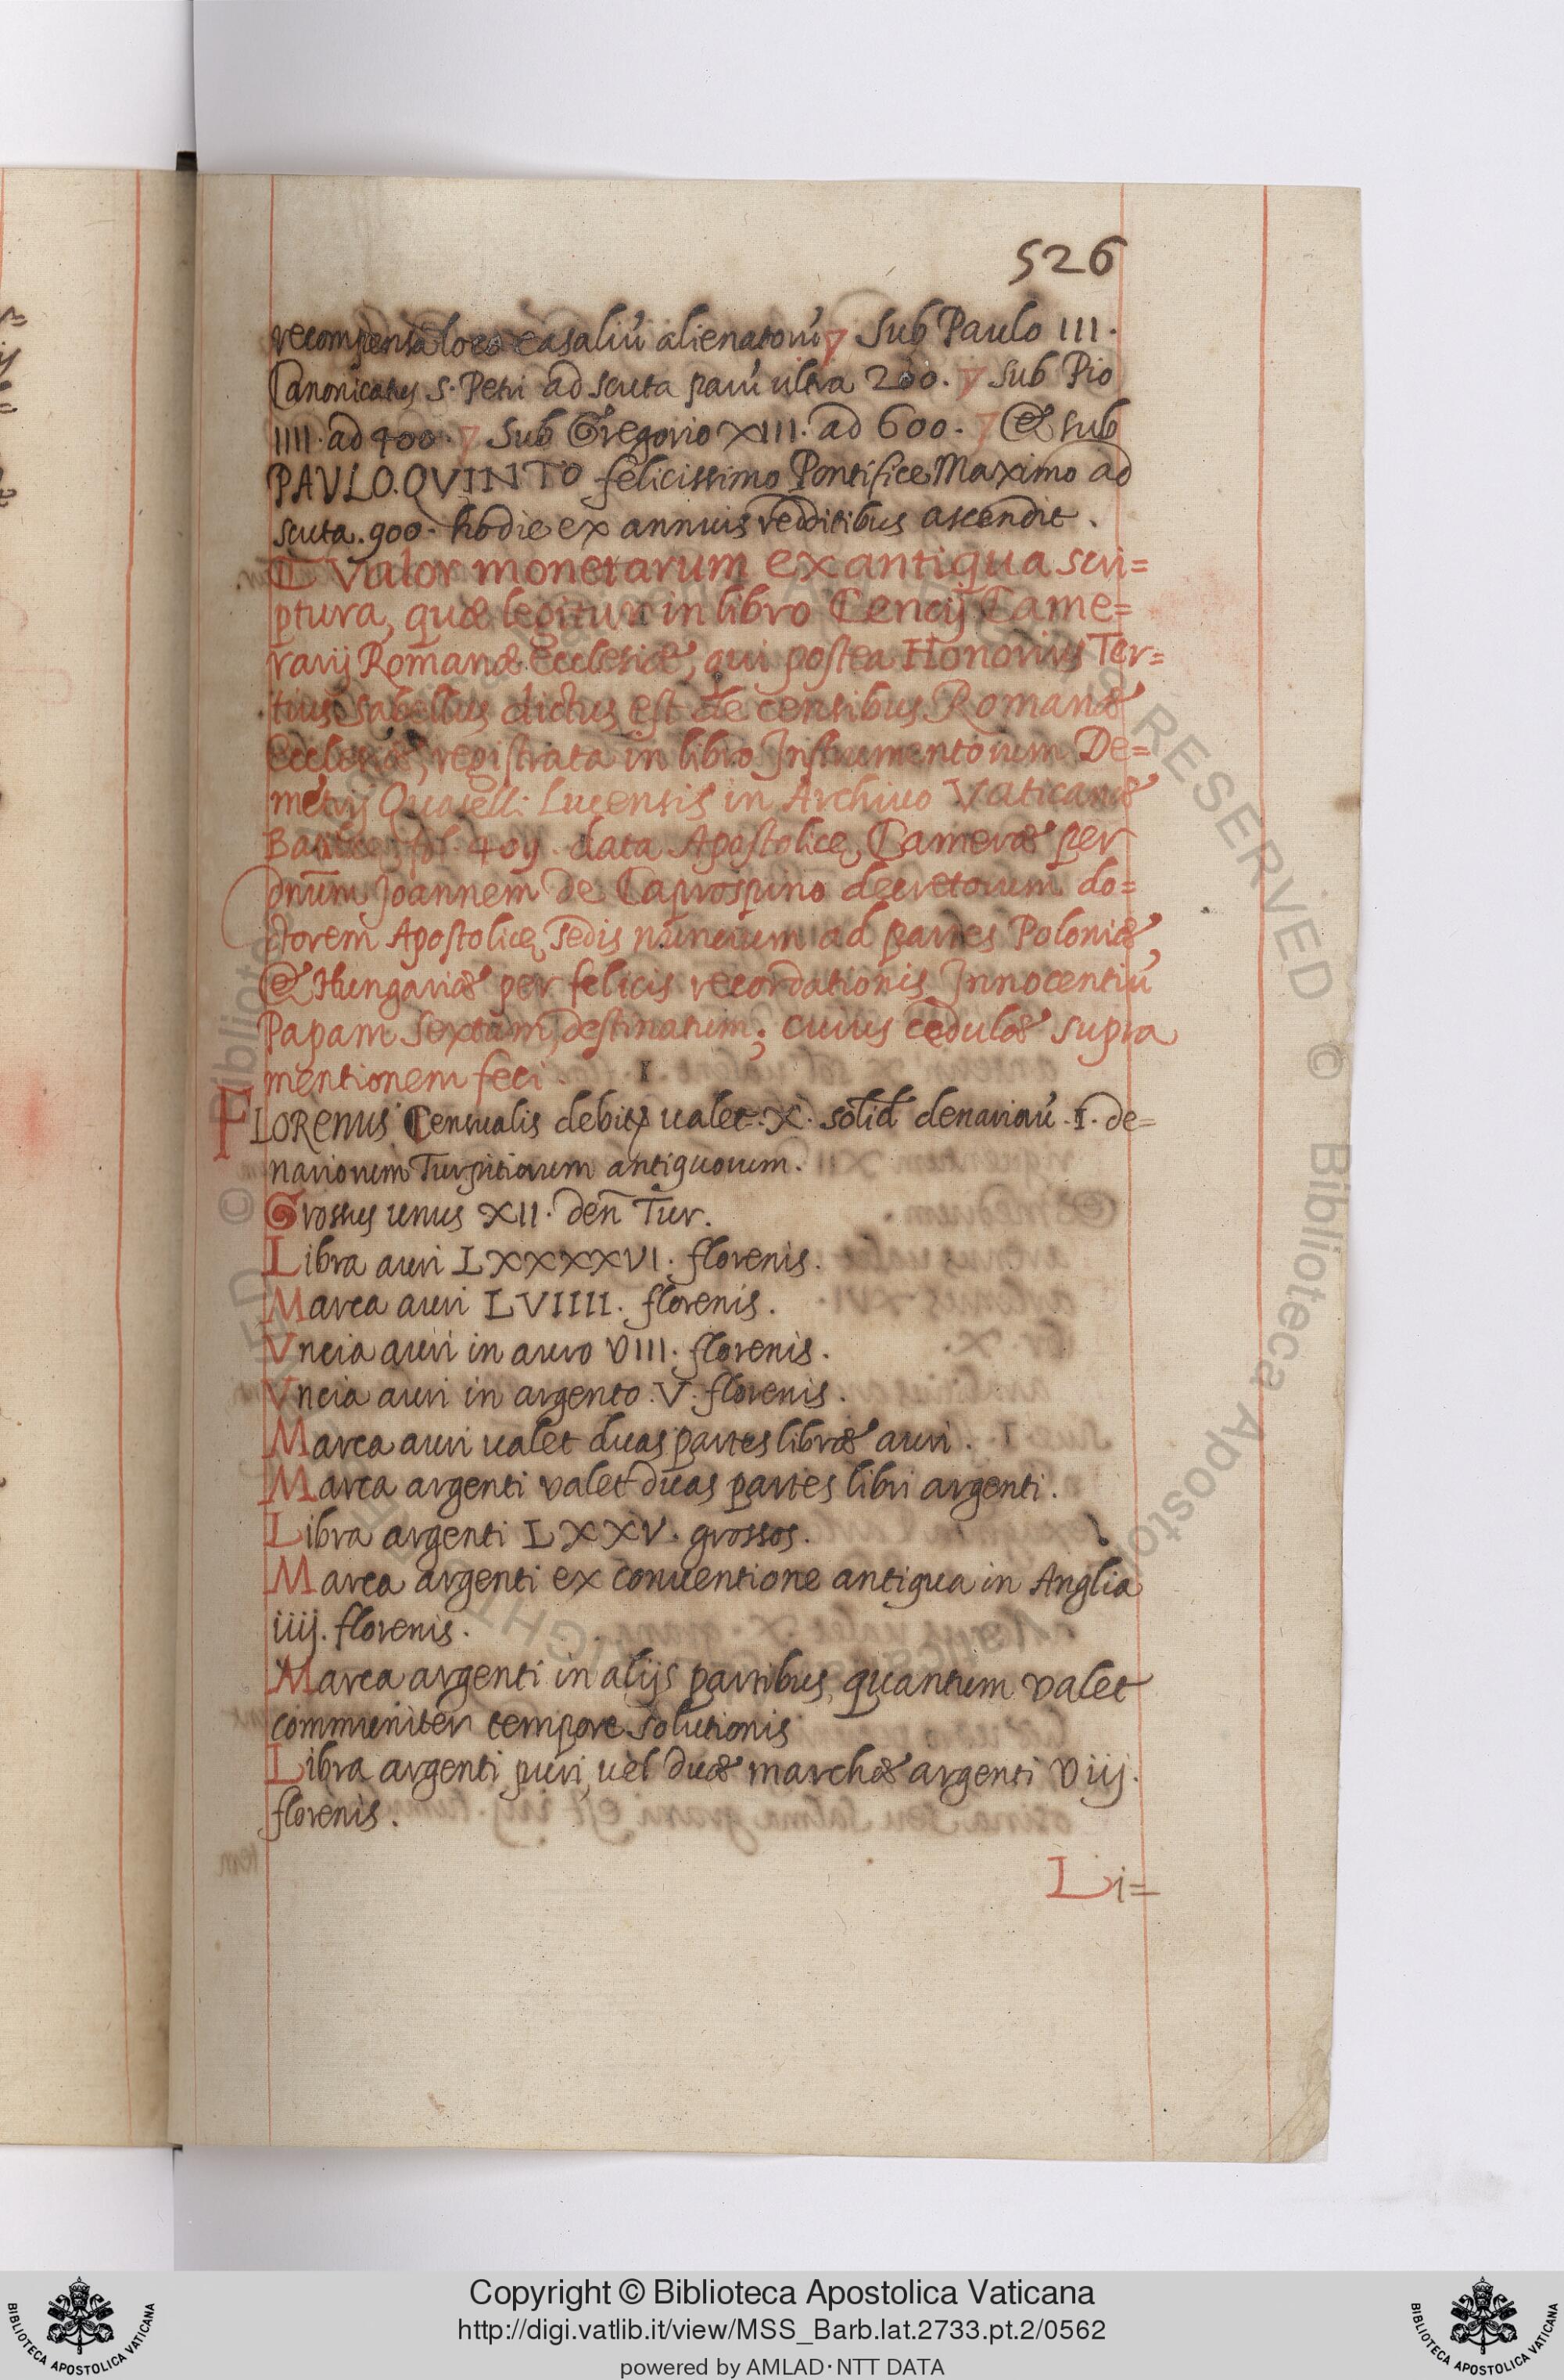 526
recompensa loco casaliū alienatorū Sub Paulo III.
Canonicatus S. Petri ad scuta parū ultra 200. Sub Pio
IIII. ad 400. Sub Gregorio XIII. ad 600. & sub
PAVLO.QVINTO felicissimo Pontifice Maximo ad
scuta.900. hodie ex annuis redditibus ascendit.
Valor monetarum ex antiqua scri=
ptura, quæ legitur in libro Cencij Came=
rarij Romanæ Ecclesiæ, qui postea Honorius Ter=
tius Sabellus dictus est de censibus Romanæ
Ecclesiæ, registrata in libro Instrumentorum De=
metrij Lucensis in Archiuo Vaticanæ
data Apostolicę Cameræ per
dnūm Joannem de Caprospino decretorum do=
ctorem Apostolicę Sedis nuncium ad partes Poloniæ,
& Hungariæ per felicis recordationis Innocentiū
Papam Sextum destinatum; cuius cedulæ supra
mentionem feci.
FLORENUS Censualis valet. X. solid denariorū. I. de=
nariorum antiquorum.
Grossus unus XII. den̄ Tur.
Libra auri LXXXXVI. florenis.
Marca auri LVIIII. florenis.
Vncia auri in auro VIII. florenis.
Vncia auri in argento. V. florenis.
Marca auri ualet duas partes libræ auri.
Marca argenti valet duas partes libri argenti.
Libra argenti LXXV. grossos.
Marca argenti ex conuentione antiqua in Anglia
iiij. florenis.
Marca argenti in alijs partibus, quantum valet
communiter tempore solutionis
Libra argenti puri, uel duæ marchæ argenti Viij.
florenis.
Li=
© Biblioteca Apostolica
RESERVED
Copyright © Biblioteca Apostolica Vaticana
http://digi.vatlib.it/view/MSS_Barb.lat.2733.pt.2/0562
powered by AMLAD·NTT DATA
BIBLIOTECA APOSTOLICA VATICANA
BIBLIOTECA APOSTOLICA VATICANA